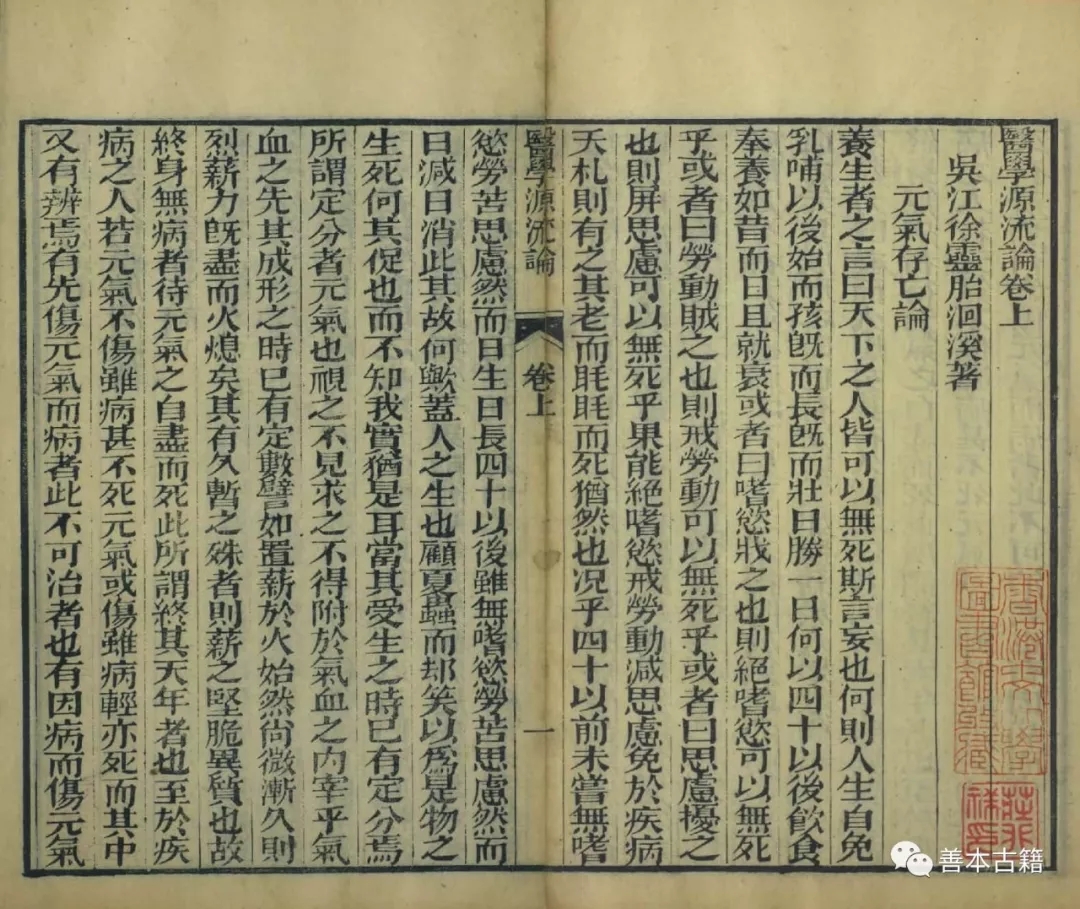 醫學源流論卷上
吳江徐靈胎洄溪著
元氣存亡論
養生者之言曰天下之人皆可以無死斯言妄也何則人生自免
乳哺以後始而孩旣而長旣而壯日勝一日何以四十以後飮食
奉養如昔而日且就衰或者曰嗜慾戕之也則絕嗜慾可以無死
乎或者曰勞動賊之也則戒勞動可以無死乎或者曰思慮擾之
也則屏思慮可以無死乎果能絕嗜慾戒勞動減思慮免於疾病
夭札則有之其老而眊眊而死猶然也况乎四十以前未嘗無嗜
醫學源流論
卷上
一
慾勞苦思慮然而日生日長四十以後雖無嗜慾勞苦思慮然而
日減日消此其故何歟蓋人之生也顧夏蟲而却笑以爲是物之
生死何其促也而不知我實猶是耳當其受生之時已有定分焉
所謂定分者元氣也視之不見求之不得附於氣血之內宰乎氣
血之先其成形之時已有定數譬如置薪於火始然尙微漸久則
烈薪力旣盡而火熄矣其有久暫之殊者則薪之堅脆異質也故
終身無病者待元氣之自盡而死此所謂終其天年者也至於疾
病之人若元氣不傷雖病甚不死元氣或傷雖病輕亦死而其中
又有辨焉有先傷元氣而病者此不可治者也有因病而傷元氣
香港中文大學
圖書館藏
善本古籍